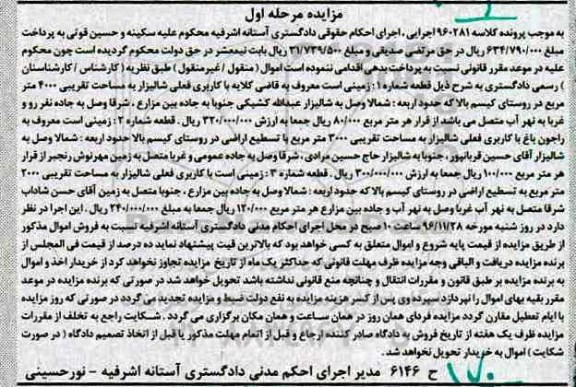 مزایده مرحله اول
به موجب پرونده کلاسه ۹۶۰۲۸۱ اجرایی ، اجرای احکام حقوقی دادگستری آستانه اشرفیه محکوم علیه سکینه و حسین قونی به پرداخت
مبلغ ۶۳۴/۷۹۰/۰۰۰ ریال در حق مرتضی صدیقی و مبلغ ۳۱/۷۳۹/۵۰۰ ریال بابت نیمعشر در حق دولت محکوم گردیده است چون محکوم
علیه در موعد مقرر قانونی نسبت به پرداخت بدهی اقدامی ننموده است اموال ( منقول / غیرمنقول ) طبق نظریه ( کارشناس / کارشناسان
) رسمی دادگستری به شرح ذیل قطعه شماره ۱ : زمینی است معروف به قاضی کلایه با کاربری فعلی شالیزار به مساحت تقریبی ۴۰۰۰ متر
مربع در روستای کیسم بالا که حدود اربعه : شمالا وصل به شالیزار عبدالله کشیکی جنوبا به جاده بین مزارع ، شرقا وصل به جاده نفر رو و
غربا به نهر آب متصل می باشد از قرار هر متر مربع ۸۰/۰۰۰ ریال جمعا به ارزش ۳۲۰/۰۰۰/۰۰۰ ریال . قطعه شماره ۲ : زمینی است معروف به
راجون باغ با کاربری فعلی شالیزار به مساحت تقریبی ۳۰۰۰ متر مربع با تسطیح اراضی در روستای کیسم بالا حدود اربعه : شمالا وصل به
شالیزار آقای حسین قربانپور ، جنوبا به شالیزار حاج حسین مرادی ، شرقا وصل به جاده عمومی و غربا متصل به زمین مهرنوش رنجبر از قرار
هر متر مربع ۱۰۰/۰۰۰ ریال جمعا به ارزش ۳۰۰/۰۰۰/۰۰۰ ریال . قطعه شماره ۳ : زمینی است با کاربری فعلی شالیزار به مساحت تقریبی ۲۰۰۰
متر مربع به تسطیح اراضی در روستای کیسم بالا که حدود اربعه : شمالا وصل به جاده بین مزارع ، جنوبا متصل به زمین آقای حسن شاداب
شرقا متصل به نهر آب غربا وصل به نهر آب و جاده بین مزارع هر متر مربع ۱۲۰/۰۰۰ ریال جمعا به مبلغ ۲۴۰/۰۰۰/۰۰۰ ریال . این اجرا در نظر
دارد در روز شنبه مورخه ۹۶/۱۱/۲۸ ساعت ۱۰ صبح در محل اجرای احکام مدنی دادگستری آستانه اشرفیه نسبت به فروش اموال مذکور
از طریق مزایده از قیمت پایه شروع و اموال متعلق به کسی خواهد بود که بالاترین قیمت پیشنهاد نماید ده درصد از قیمت فی المجلس از
برنده مزایده دریافت و الباقی وجه مزایده ظرف مهلت قانونی که حداکثر یک ماه از تاریخ مزایده تجاوز نخواهد کرد از خریدار اخذ و اموال
به برنده مزایده بر طبق قانون و مقررات انتقال و چنانچه منع قانونی نداشته باشد تحویل خواهد شد در صورتی که برنده مزایده در موعد
مقرر بقیه بهای اموال را نپردازد سپرده وی پس از کسر هزینه مزایده به نفع دولت ضبط و مزایده تجدید می گردد در صورتی که روز مزایده
با ایام تعطیل مقارن گردد مزایده فردای همان روز در همان ساعت و همان مکان برگزاری می گردد . شکایت راجع به تخلف از مقررات
مزایده ظرف یک هفته از تاریخ فروش به دادگاه صادر کننده ارجاع و قبل از اتمام مهلت مذکور یا قبل از اتخاذ تصمیم دادگاه ( در صورت
شکایت ) اموال به خریدار تحویل نخواهد شد .
ح ۶۱۴۶ مدیر اجرای احکم مدنی دادگستری آستانه اشرفیه - نورحسینی